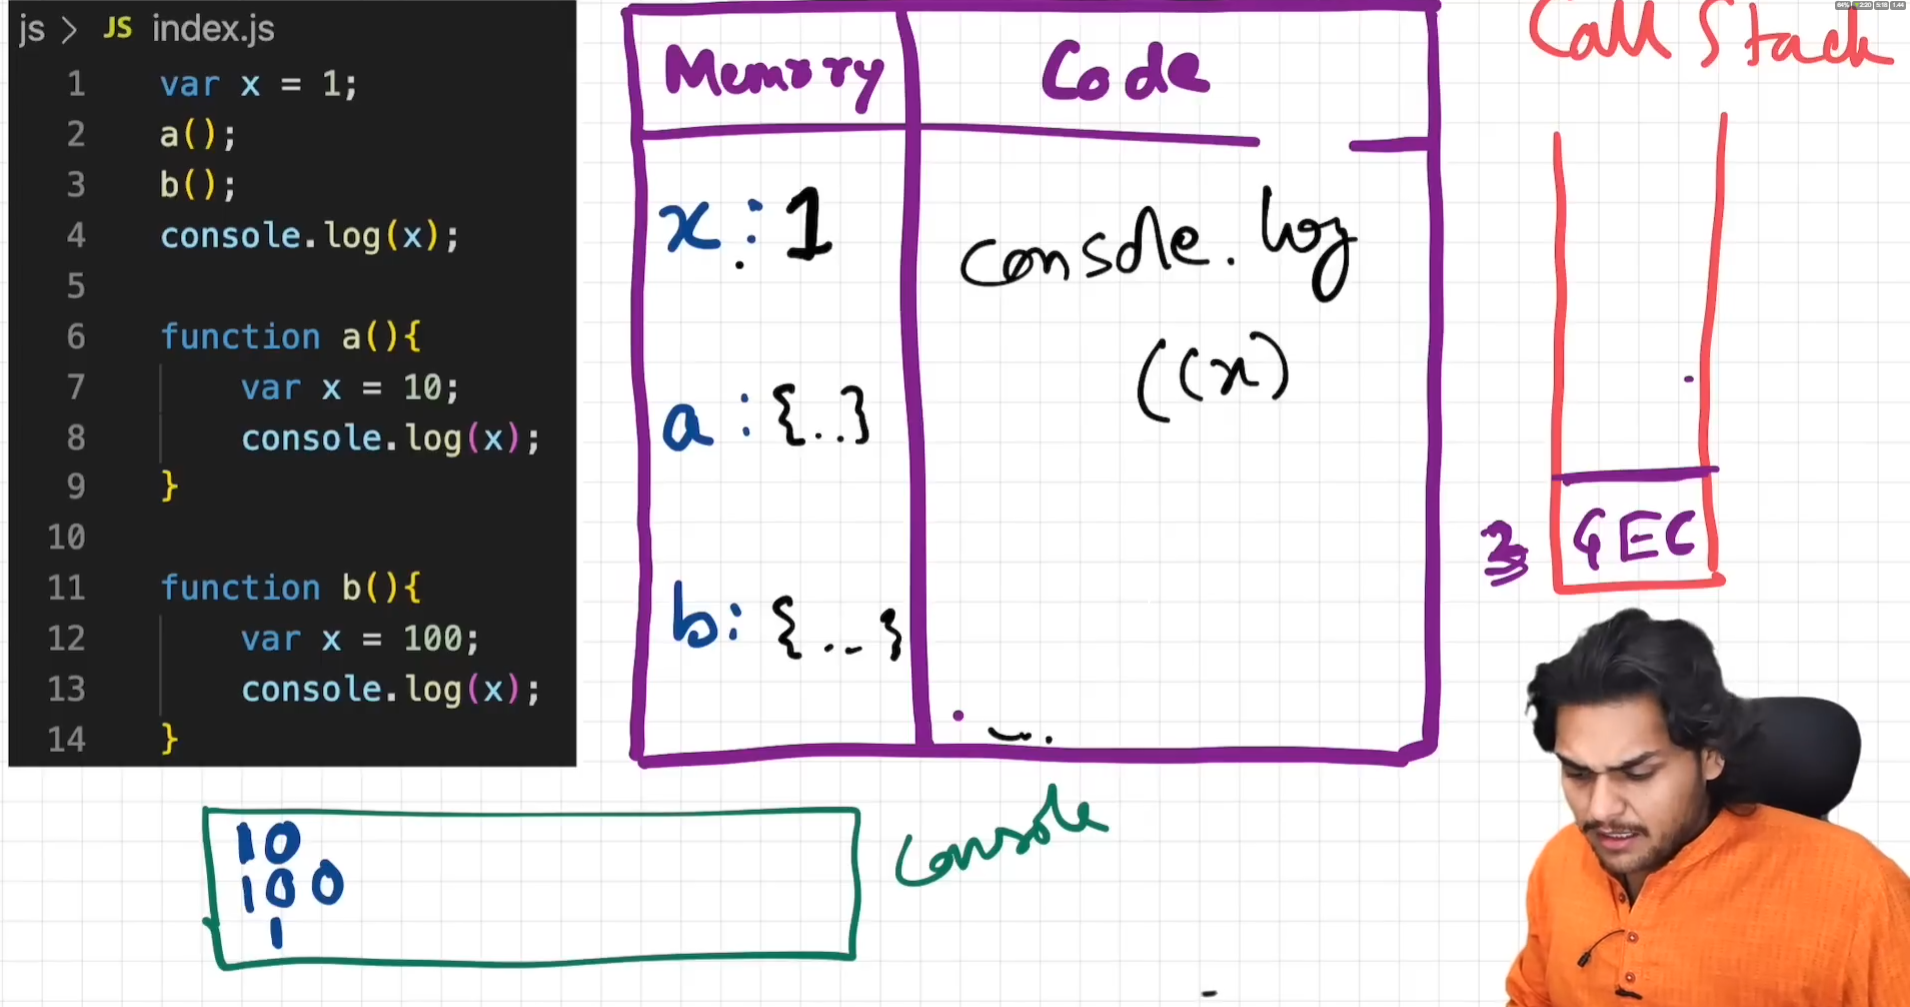 js > JS index.js
1 var x = 1;
2 a();
3 b();
4 console.log(x);
5
6 function a(){
7 var x = 10;
8 console.log(x);
9 }
10
11 function b(){
12 var x = 100;
13 console.log(x);
14 }
Memory Code
x : 1
console.log
((x)
a : {..}
b: {...}
Call Stack
GEC
10
100
1
Console
84% 2:20 5:18 1.44